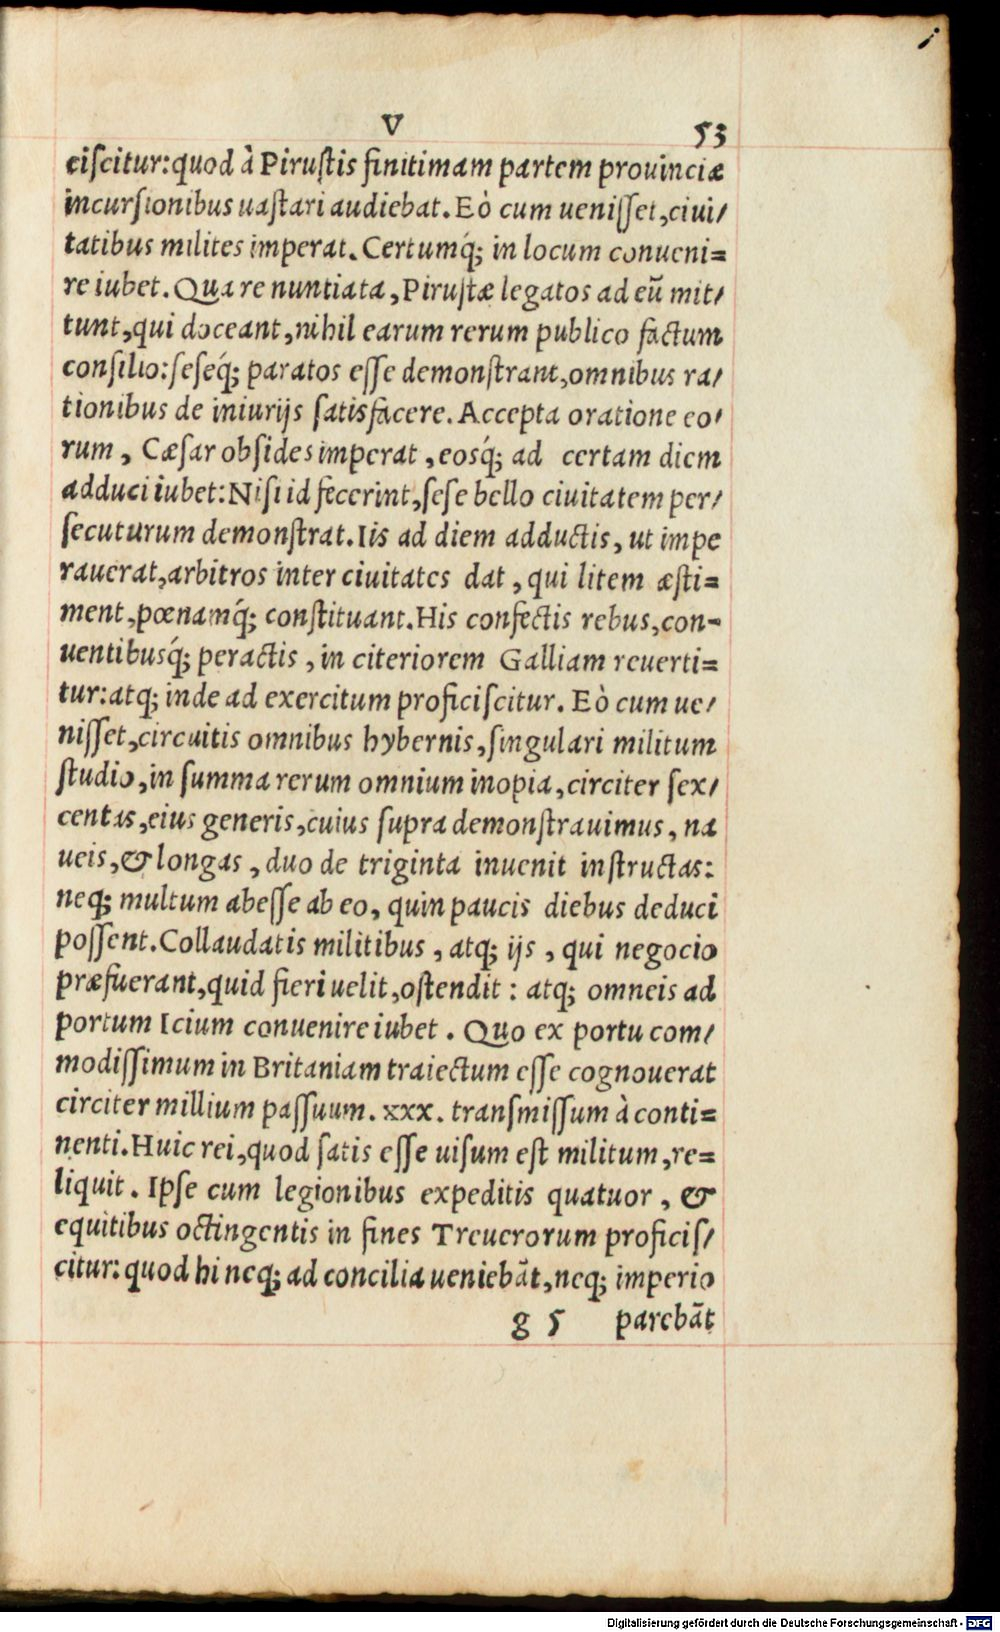 V 53
ciſcitur: quod à Piruſtis finitimam partem prouinciæ
incurſionibus uaſtari audiebat. Eò cum ueniſſet, ciui/
tatibus milites imperat. Certumq́; in locum conueni=
re iubet. Qua re nuntiata, Piruſtæ legatos ad eũ mit/
tunt, qui doceant, nihil earum rerum publico factum
conſilio: ſeſeq́; paratos eſſe demonſtrant, omnibus ra/
tionibus de iniurijs ſatisfacere. Accepta oratione eo/
rum, Cæſar obſides imperat, eosq́; ad certam diem
adduci iubet: Niſi id fecerint, ſeſe bello ciuitatem per/
ſecuturum demonſtrat. Iis ad diem adductis, ut impe
rauerat, arbitros inter ciuitates dat, qui litem æſti=
ment, pœnamq́; conſtituant. His confectis rebus, con-
uentibusq́; peractis, in citeriorem Galliam reuerti=
tur: atq; inde ad exercitum proficiſcitur. Eò cum ue/
niſſet, circuitis omnibus hybernis, ſingulari militum
ſtudio, in ſumma rerum omnium inopia, circiter ſex/
centas, eius generis, cuius ſupra demonſtrauimus, na
ueis, & longas, duo de triginta inuenit inſtructas:
neq; multum abeſſe ab eo, quin paucis diebus deduci
poſſent. Collaudatis militibus, atq; ijs, qui negocio
præfuerant, quid fieri uelit, oſtendit: atq; omneis ad
portum Icium conuenire iubet. Quo ex portu com/
modiſſimum in Britaniam traiectum eſſe cognouerat
circiter millium paſſuum. xxx. tranſmiſſum à conti=
nenti. Huic rei, quod ſatis eſſe uiſum eſt militum, re=
liquit. Ipſe cum legionibus expeditis quatuor, &
equitibus octingentis in fines Treuerorum proficiſ/
citur: quod hi neq; ad concilia ueniebãt, neq; imperio
g 5 parebãt
Digitalisierung gefördert durch die Deutsche Forschungsgemeinschaft - DFG